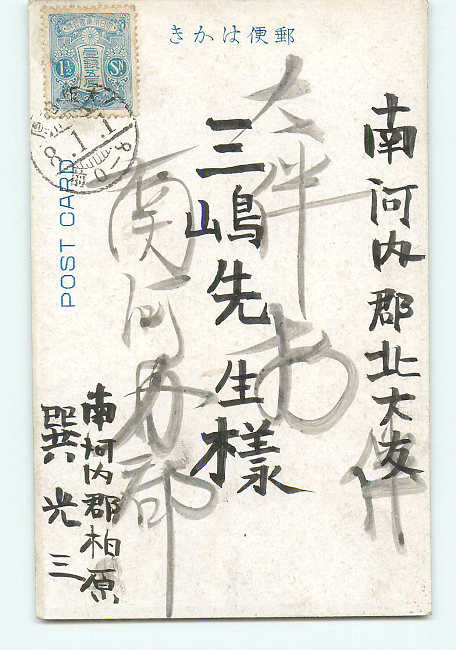 きかは便郵
南河内郡北大友
三嶋先生様
大伴村
南河内郡
南河内郡柏原
巽光三
POST CARD
1½ Sn
8.1.1